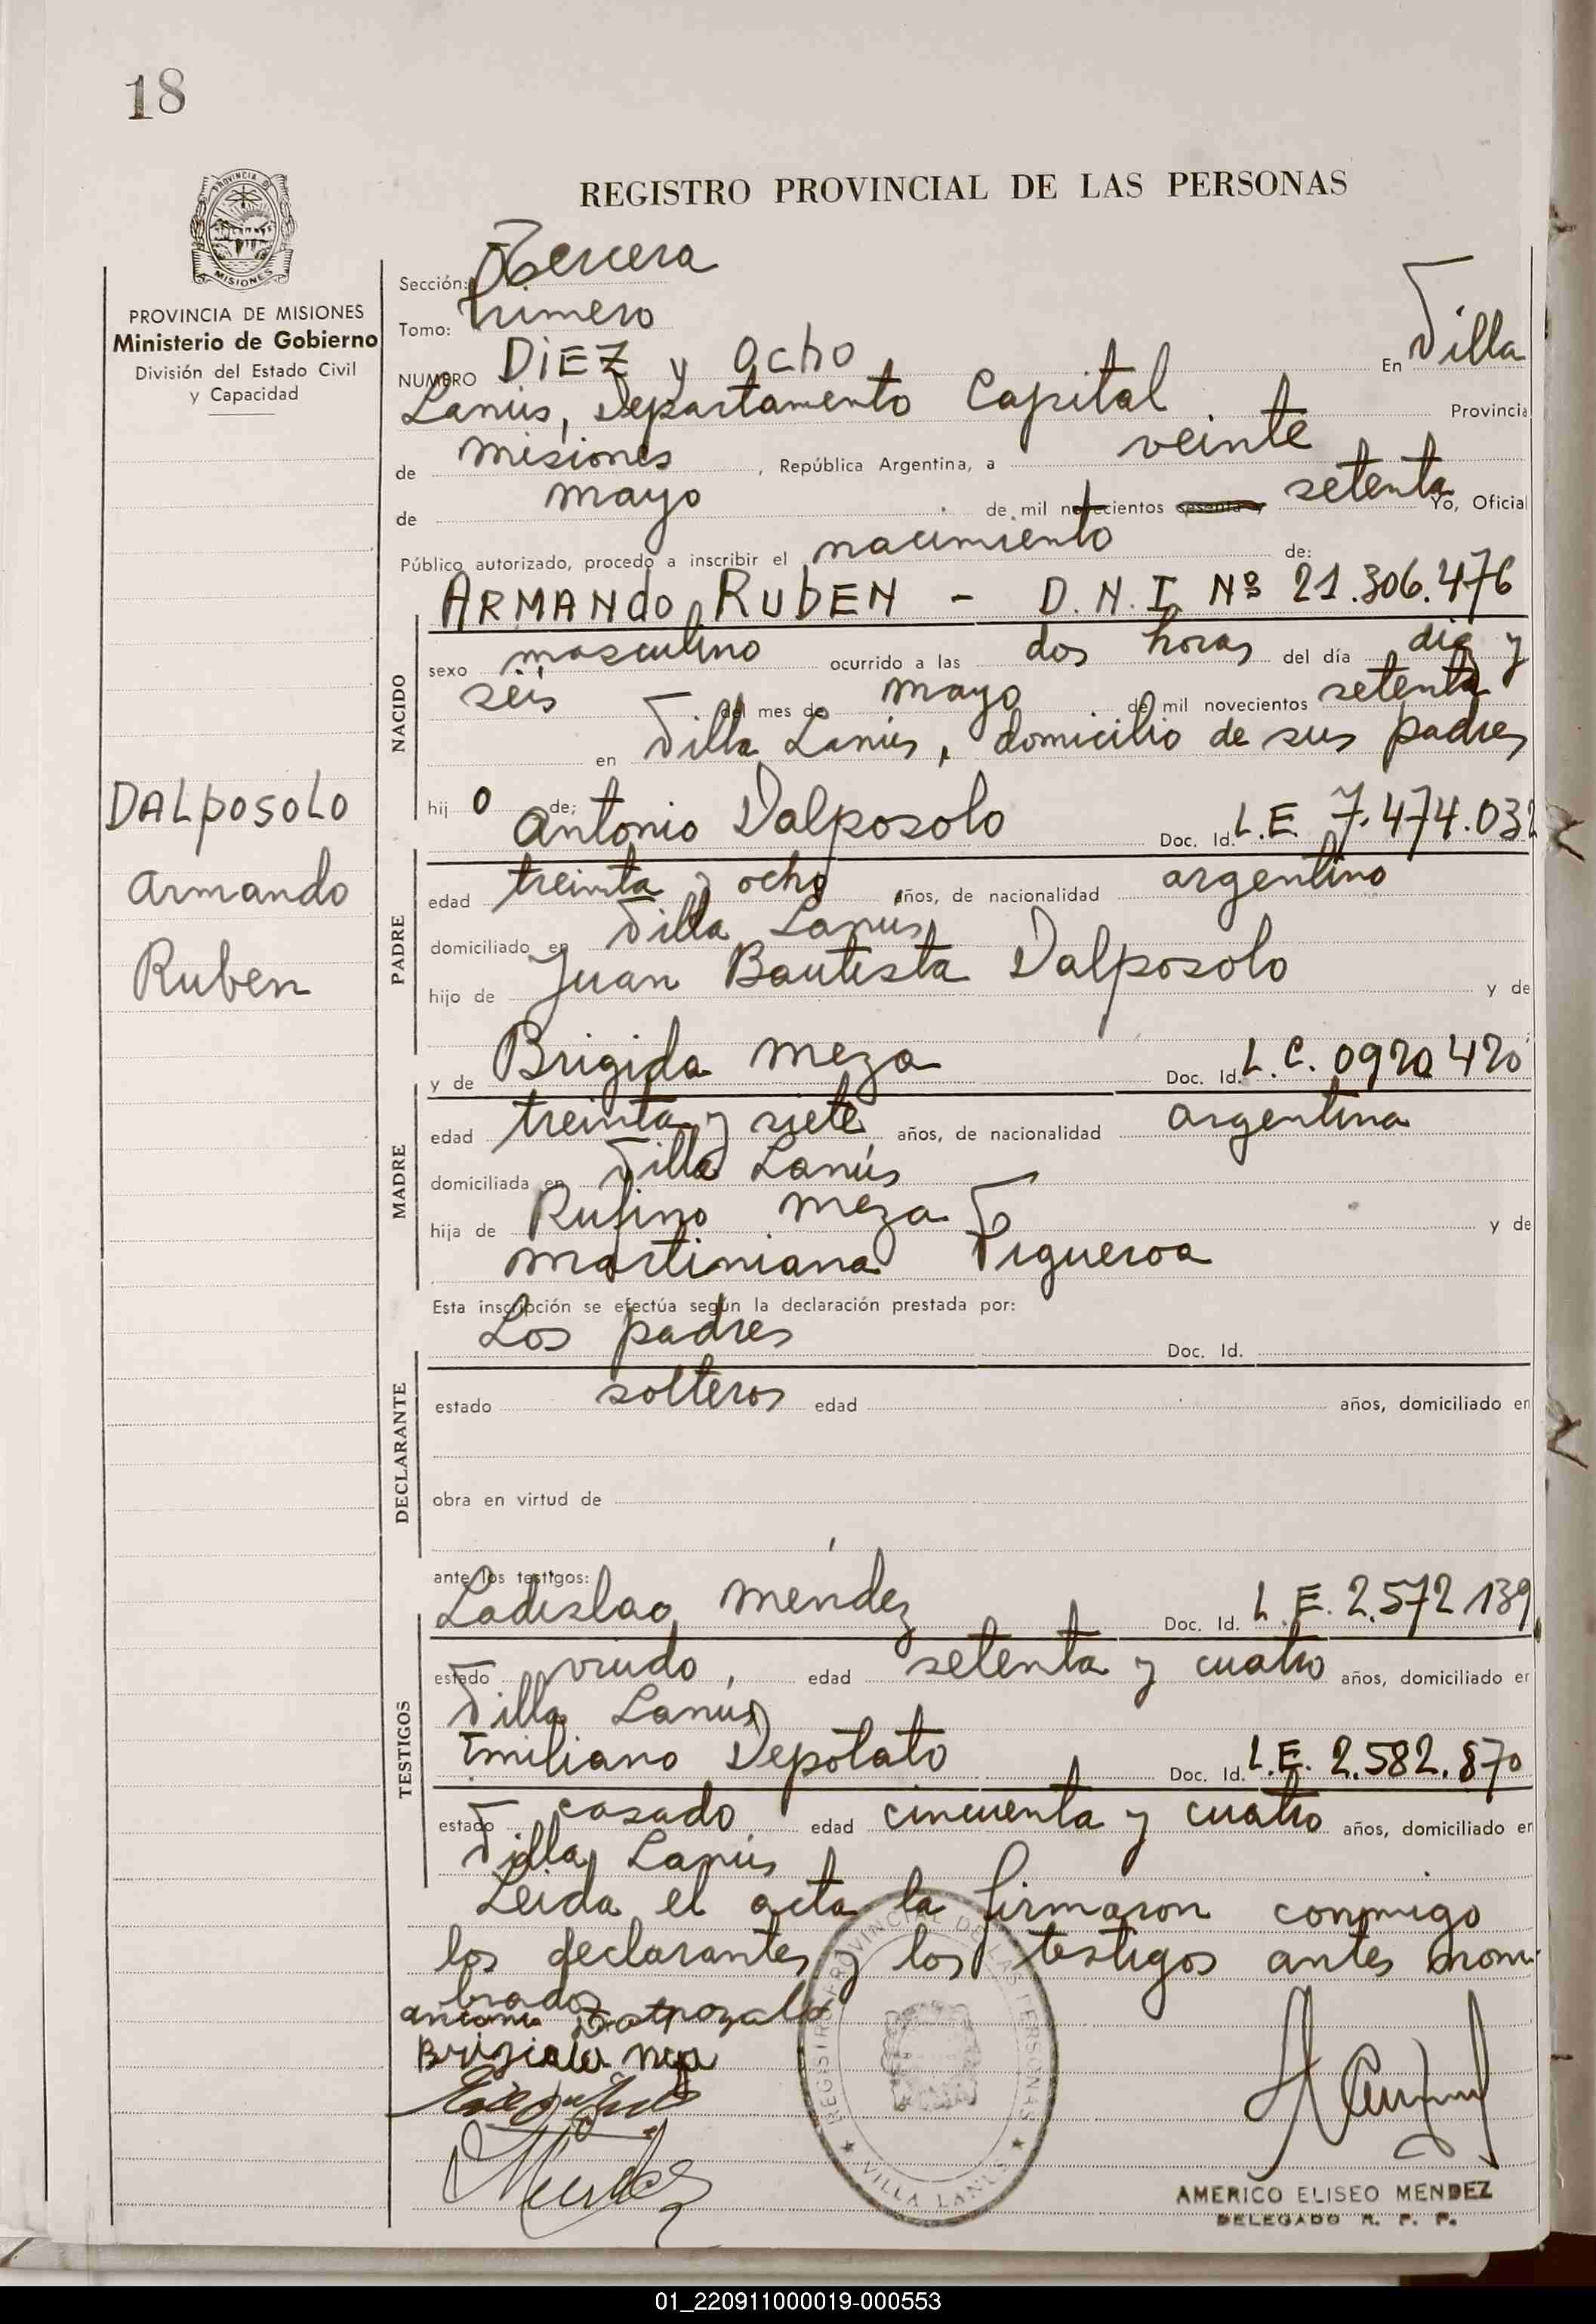 18
REGISTRO PROVINCIAL DE LAS PERSONAS
PROVINCIA DE MISIONES
MISIONES
PROVINCIA DE MISIONES
Ministerio de Gobierno
División del Estado Civil
y Capacidad
Sección: Tercera
Tomo: Primero
NUMERO DiEZ y Ocho En Villa
Lanús, Departamento Capital Provincia
de Misiones, República Argentina, a veinte
de mayo de mil novecientos sesenta y setenta Yo, Oficial
Público autorizado, procedo a inscribir el nacimiento de:
ARMANdO RUbEN - D.N.I. Nº 21.306.476
NACIDO
sexo masculino ocurrido a las dos horas del día diez y
seis del mes de mayo de mil novecientos setenta
en Villa Lanús, domicilio de sus padres
DALpOSOLO
Armando
Ruben
hij o de: Antonio Dalposolo Doc. Id. L.E. 7.474.032
PADRE
edad treinta y ocho años, de nacionalidad argentino
domiciliado en Villa Lanus
hijo de Juan Bautista Dalposolo y de
y de Brigida Meza Doc. Id. L.C. 0920420
MADRE
edad treinta y siete años, de nacionalidad argentina
domiciliada en Villa Lanús
hija de Rufino Meza y de
Martiniana Figueroa
Esta inscripción se efectúa según la declaración prestada por:
Los padres Doc. Id.
DECLARANTE
estado solteros edad años, domiciliado en
obra en virtud de
ante los testigos:
Ladislao Mendez Doc. Id. L.E. 2.572.139
TESTIGOS
estado viudo, edad setenta y cuatro años, domiciliado en
Villa Lanús
Emiliano Depotato Doc. Id. L.E. 2.582.870
estado casado edad cincuenta y cuatro años, domiciliado en
Villa Lanús
Leida el acta la firmaron conmigo
los declarantes y los testigos antes nom-
brados
Antonio Dalpozalo
Brigida Meza
Mendez
REGISTRO PROVINCIAL DE LAS PERSONAS
VILLA LANUS
AMERICO ELISEO MENDEZ
DELEGADO R. P. P.
01_220911000019-000553